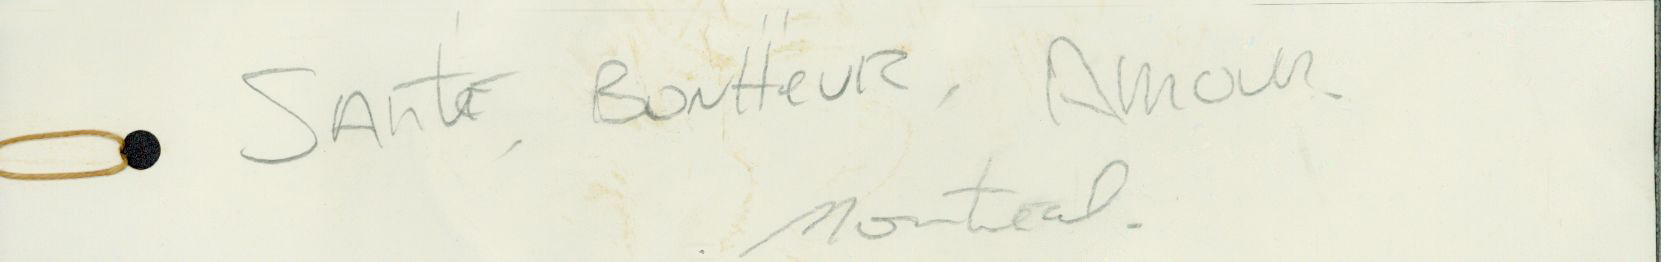 Santé, Bonheur, Amour
Montreal.